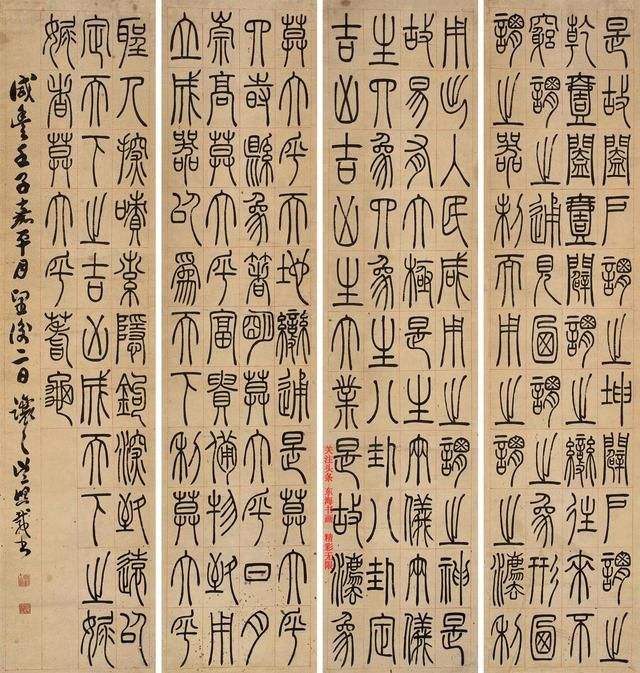 是故闔戶謂之坤闢戶謂之
乾壹闔壹闢謂之變往來不
窮謂之通見乃謂之象形乃
謂之器制而用之謂之灋利
用出入民咸用之謂之神是
故易有大極是生兩儀兩儀
生四象四象生八卦八卦定
吉凶吉凶生大業是故灋象
莫大乎天地變通是莫大乎
四時縣象著明莫大乎日月
崇高莫大乎富貴備物致用
立成器以爲天下利莫大乎
聖人探嘖索隱鉤深致遠以
定天下之吉凶成天下之娓
娓者莫大乎蓍龜
咸豐壬子嘉平月望後二日讓之吳熙載書
关注头条 东海书画 精彩无限